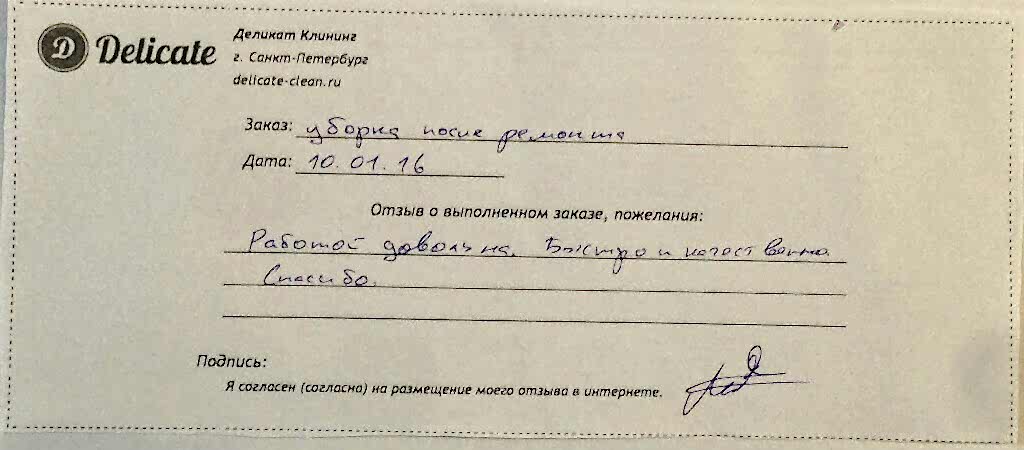 D Delicate
Деликат Клининг
г. Санкт-Петербург
delicate-clean.ru
Заказ: уборка после ремонта
Дата: 10.01.16
Отзыв о выполненном заказе, пожелания:
Работой довольна. Быстро и качественно.
Спасибо.
Подпись:
Я согласен (согласна) на размещение моего отзыва в интернете.